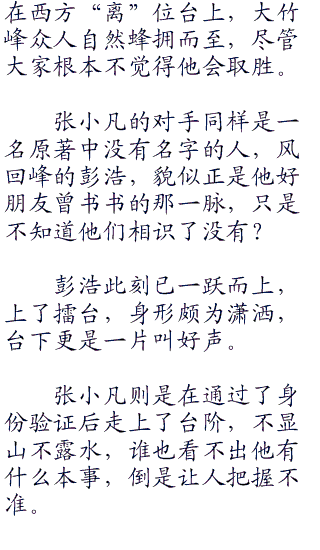 在西方“离”位台上，大竹
峰众人自然蜂拥而至，尽管
大家根本不觉得他会取胜。
张小凡的对手同样是一
名原著中没有名字的人，风
回峰的彭浩，貌似正是他好
朋友曾书书的那一脉，只是
不知道他们相识了没有？
彭浩此刻已一跃而上，
上了擂台，身形颇为潇洒，
台下更是一片叫好声。
张小凡则是在通过了身
份验证后走上了台阶，不显
山不露水，谁也看不出他有
什么本事，倒是让人把握不
准。